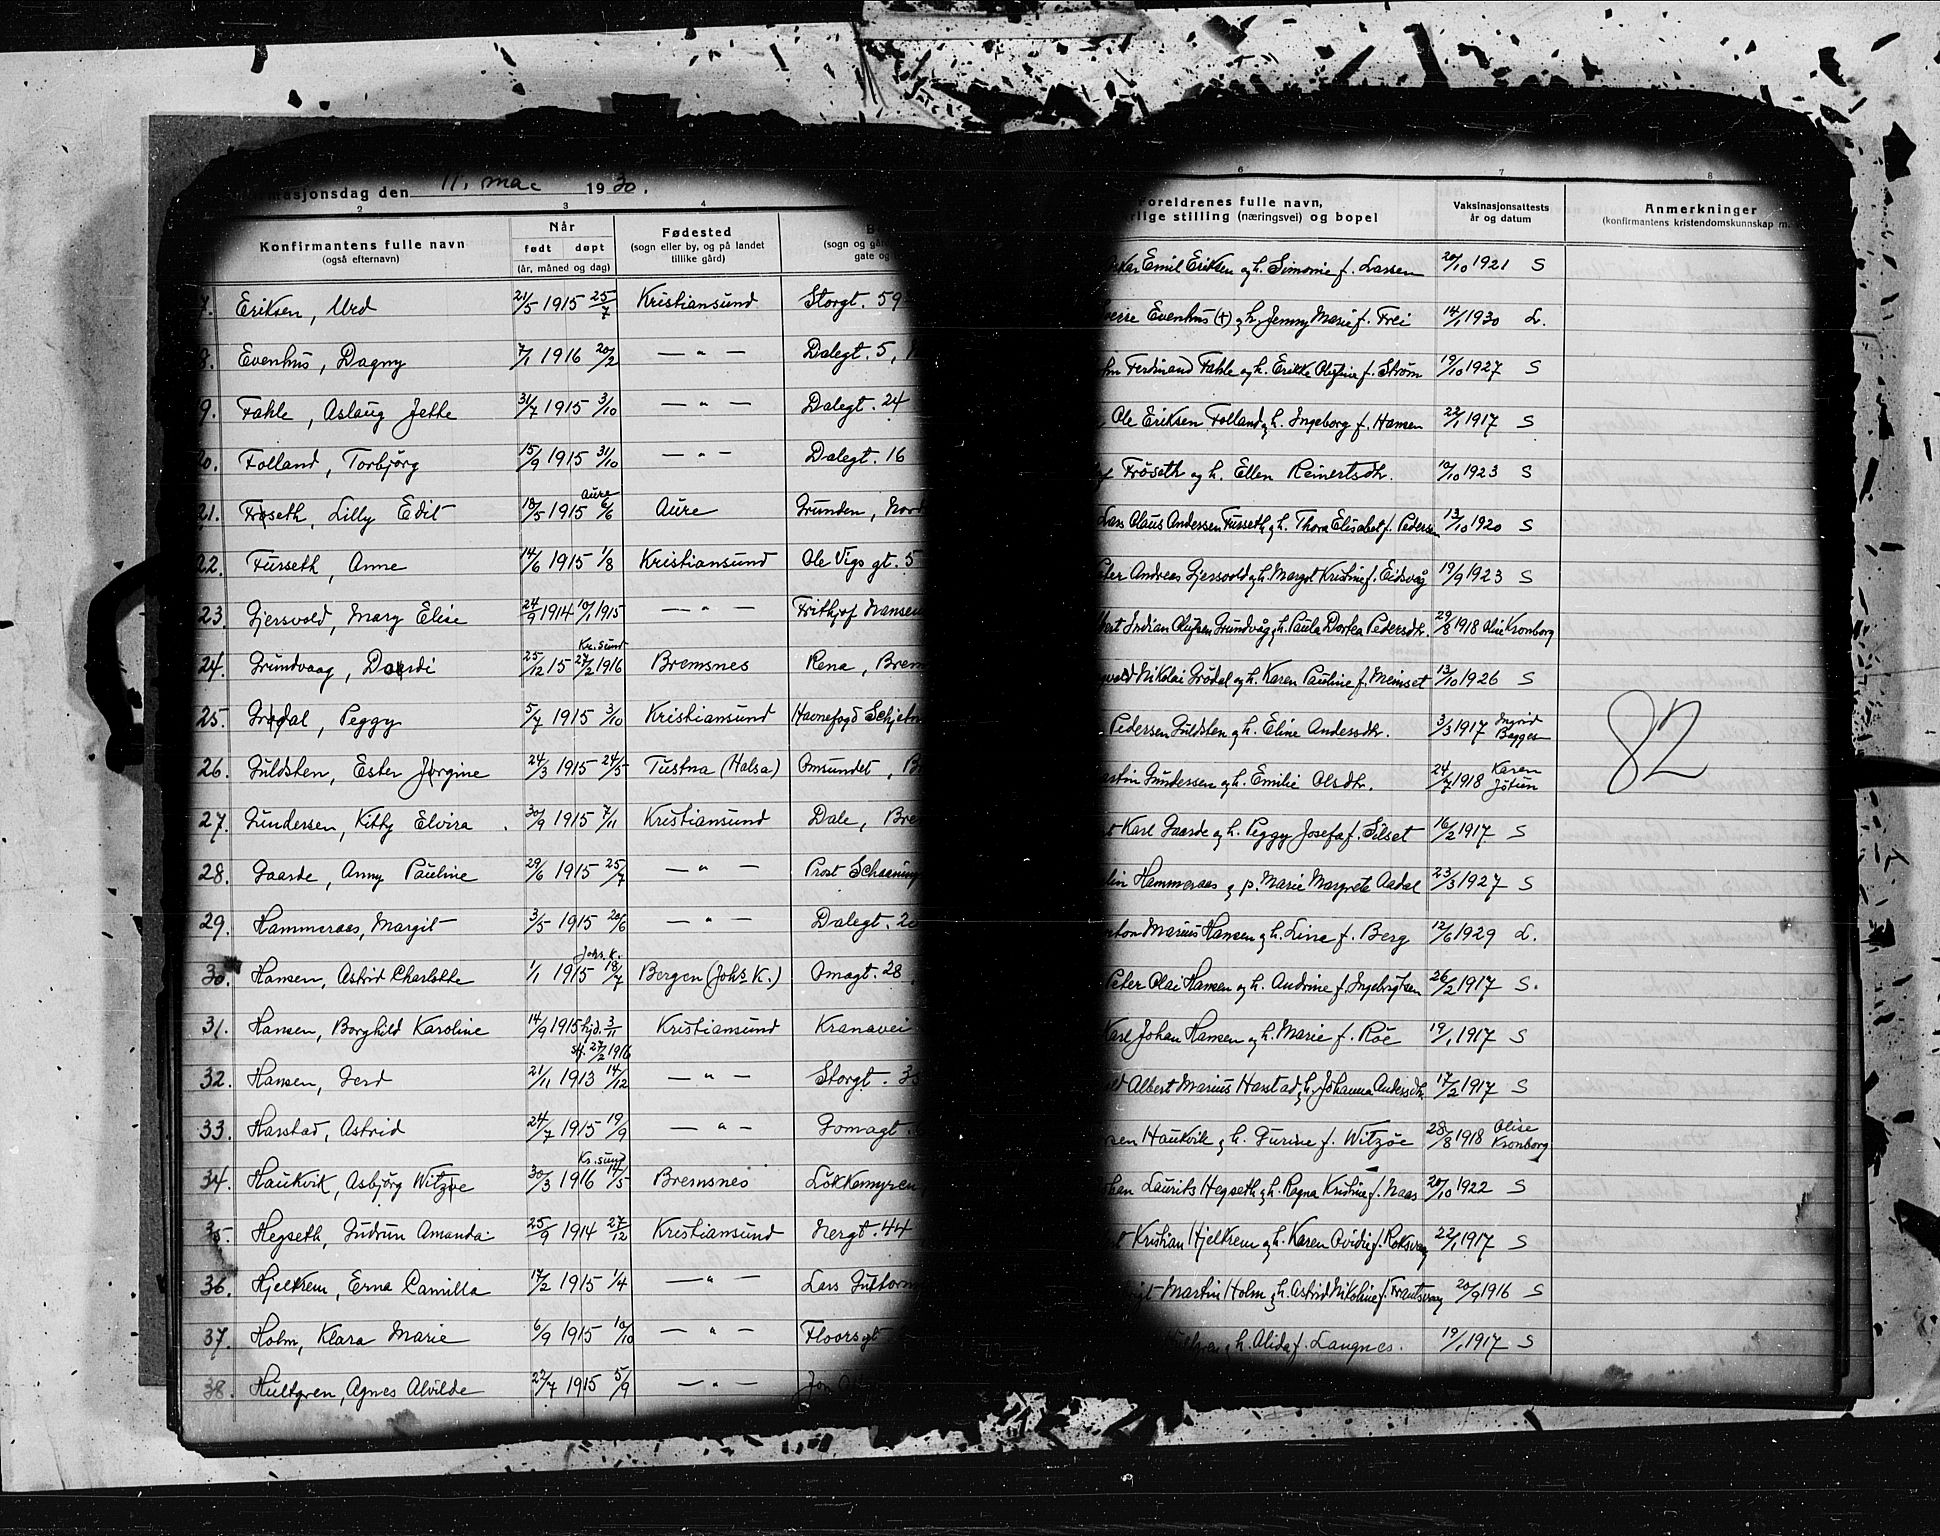 masjonsdag den 11. mai 1930.
2 3 4
Konfirmantens fulle navn
(også efternavn)
Når
født døpt
(år, måned og dag)
Fødested
(sogn eller by, og på landet
tillike gård)
B
(sogn og går
gate og
7. Eriksen, Urd 21/5 1915 25/7 Kristiansund Storgt. 59
8. Evenhus, Dagny 7/1 1916 20/2 — " — Dalegt. 5,
9. Fahle, Aslaug Jette 31/7 1915 3/10 — " — Dalegt. 24
20. Folland, Torbjørg 15/9 1915 31/10 — " — Dalegt. 16
Aure
21. Frøseth, Lilly Edit 18/5 1915 6/6 Aure Grunden, Nord
22. Fusseth, Anne 14/6 1915 1/8 Kristiansund Ole Vigs gt. 5
23. Gjersvold, Mary Elise 24/9 1914 10/1 1915 — " — Frithjof Nansen
Kr.sund
24. Grundvaag, Dordi 25/12 15 27/2 1916 Bremsnes Rena, Brem
25. Grødal, Peggy 5/7 1915 3/10 Kristiansund Havnefogd Schjelv
26. Guldsten, Ester Jørgine 24/3 1915 24/5 Tustna (Halsa) Omsundet, B
27. Gundersen, Kitty Elvira 30/9 1915 7/11 Kristiansund Dale, Bre
28. Gaarde, Anny Pauline 29/6 1915 25/7 — " — Prost Schaaning
29. Hammeraas, Margit 3/5 1915 20/6 — " — Dalegt. 20
Johs. K.
30. Hansen, Astrid Charlotte 1/1 1915 18/7 Bergen (Johs K.) Omagt. 28
31. Hansen, Borghild Karoline 14/9 1915 hjd. 3/11 Kristiansund Kranavei
st. 27/2 1916
32. Hansen, Gerd 21/11 1913 14/12 — " — Storgt. 35
33. Harstad, Astrid 24/7 1915 19/9 — " — Gomagt.
Kr.sund
34. Haukvik, Asbjørg Witzøe 30/3 1916 14/5 Bremsnes Løkkemyren,
35. Hegseth, Gudrun Amanda 25/9 1914 27/12 Kristiansund Nergt. 44
36. Hjelkrem, Erna Camilla 17/2 1915 1/4 — " — Lars Guttorm
37. Holm, Klara Marie 6/9 1915 10/10 — " — Floorsgt
38. Hultgren, Agnes Alvilde 22/7 1915 5/9 — " —
6 7 8
Foreldrenes fulle navn,
rlige stilling (næringsvei) og bopel
Vaksinasjonsattests
år og datum
Anmerkninger
(konfirmantens kristendomskunnskap m.
Emil Eriksen og h. Simonie f. Larsen 20/10 1921 S
verre Evenhus (+) og h. Jenny Marie f. Frei 14/1 1930 L.
Ferdinand Fahle og h. Erikke Olufine f. Strøm 19/10 1927 S
Ole Eriksen Folland og h. Ingeborg f. Hansen 22/1 1917 S
Frøseth og h. Ellen Reinertsdtr. 10/10 1923 S
Lars Olaus Andersen Fusseth og h. Thora Elisabet f. Pedersen 13/10 1920 S
Peter Andreas Gjersvold og h. Margot Kristine f. Eidsvåg 19/9 1923 S
bert Indian Olufsen Grundvåg og h. Paula Dortea Pedersdtr. 29/8 1918 Olise Kronborg
Nikolai Grødal og h. Karen Pauline f. Meinset 13/10 1926 S
Pedersen Guldsten og h. Eline Andersdtr. 3/3 1917 Ingrid Bagges
82
artin Gundersen og h. Emilie Olsdtr. 24/7 1918 Karen Jøtun
Karl Gaarde og h. Peggy Josefa f. Silset 16/2 1917 S
lin Hammeraas og p. Marie Margrete Aadal 23/3 1927 S
nton Marius Hansen og h. Line f. Berg 12/6 1929 L.
Peter Olai Hansen og h. Andrine f. Ingebrigtsen 26/2 1917 S.
Karl Johan Hansen og h. Marie f. Røe 19/1 1917 S
Albert Marius Harstad og h. Johanna Andersdtr. 17/2 1917 S
rsen Haukvik og h. Gurine f. Witzøe 28/8 1918 Olise Kronborg
han Laurits Hegseth og h. Ragna Kristine f. Naas 20/10 1922 S
Kristian Hjelkrem og h. Karen Ovidie f. Roksvaag 22/1 1917 S
Martin Holm og h. Astrid Nikoline f. Frantsvaag 20/9 1916 S
og h. Alida f. Langnes. 19/1 1917 S